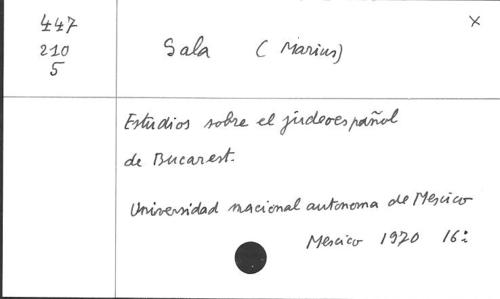 447
210
5
x
Sala (Marius)
Estudios sobre el judeoespañol
de Bucarest.
Universidad nacional autonoma de Mexico
Mexico 1970 16: